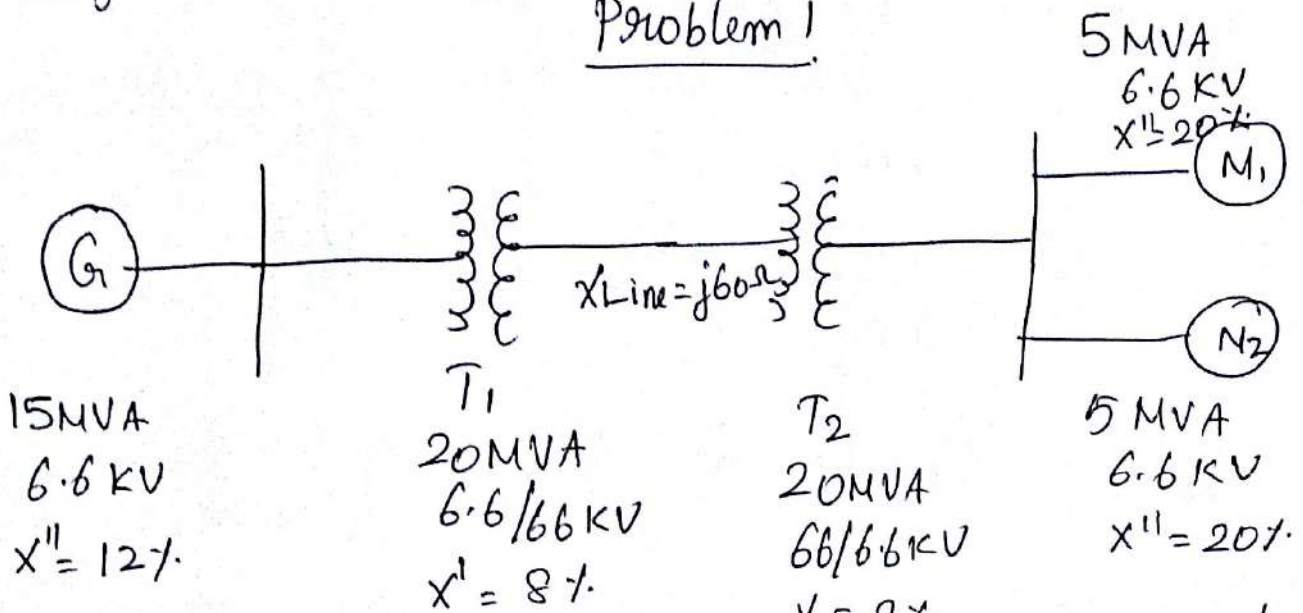 Problem 1
5 MVA
6.6 KV
X"=20%
G
M1
XLine=j60Ω
N2
15MVA
6.6 KV
X"=12%
T1
20MVA
6.6/66 KV
X'=8%
T2
20MVA
66/6.6KV
5 MVA
6.6 KV
X"=20%